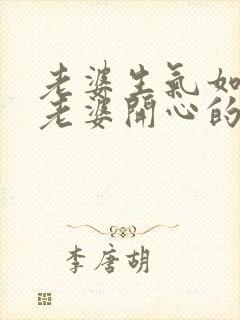 老婆生氣如
老婆開心的
李唐胡